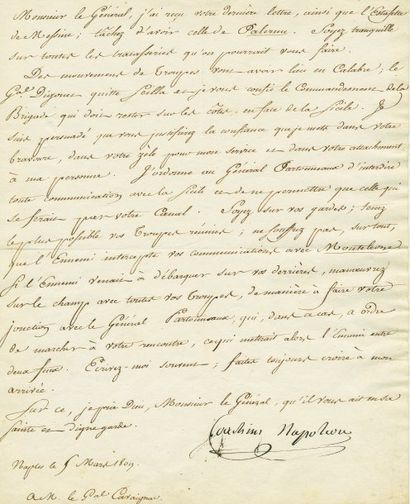 Monsieur le Général, j'ai reçu votre dernière lettre, ainsi que l'Estafette
de Messine; tâchez d'avoir celle de Palerme. Soyez tranquille
sur toutes les tracasseries qu'on pourrait vous faire.
Des mouvemens de troupes vont avoir lieu en Calabre; le
Gal. Digonet quitte Scilla et je vous confie le Commandement de la
Brigade qui doit rester sur les côtes en face de la Sicile. Je
suis persuadé que vous justifierez la confiance que je mets dans votre
bravoure, dans votre zèle pour mon service et dans votre attachement
à ma personne. J'ordonne au Général Partouneaux d'interdire
toute communication avec la Sicile et de ne permettre que celle qui
se ferait par votre Canal. Soyez sur vos gardes; tenez
le plus possible vos troupes réunies; ne souffrez pas, surtout,
que l'Ennemi intercepte vos communications avec Monteleone
Si l'Ennemi venait à débarquer sur vos derrières, manœuvrez
sur le champ avec toutes vos troupes, de manière à faire votre
jonction avec le Général Partouneaux qui, dans ce cas, a ordre
de marcher à votre rencontre, ce qui mettrait alors l'Ennemi entre
deux feux. Ecrivez-moi souvent; faites toujours croire à mon
arrivée.
Sur ce, je prie Dieu, Monsieur le Général, qu'il vous ait en sa
sainte et digne garde.
Joachim Napoléon
Naples le 5 Mars 1809.
A M. le Gal Cavaignac